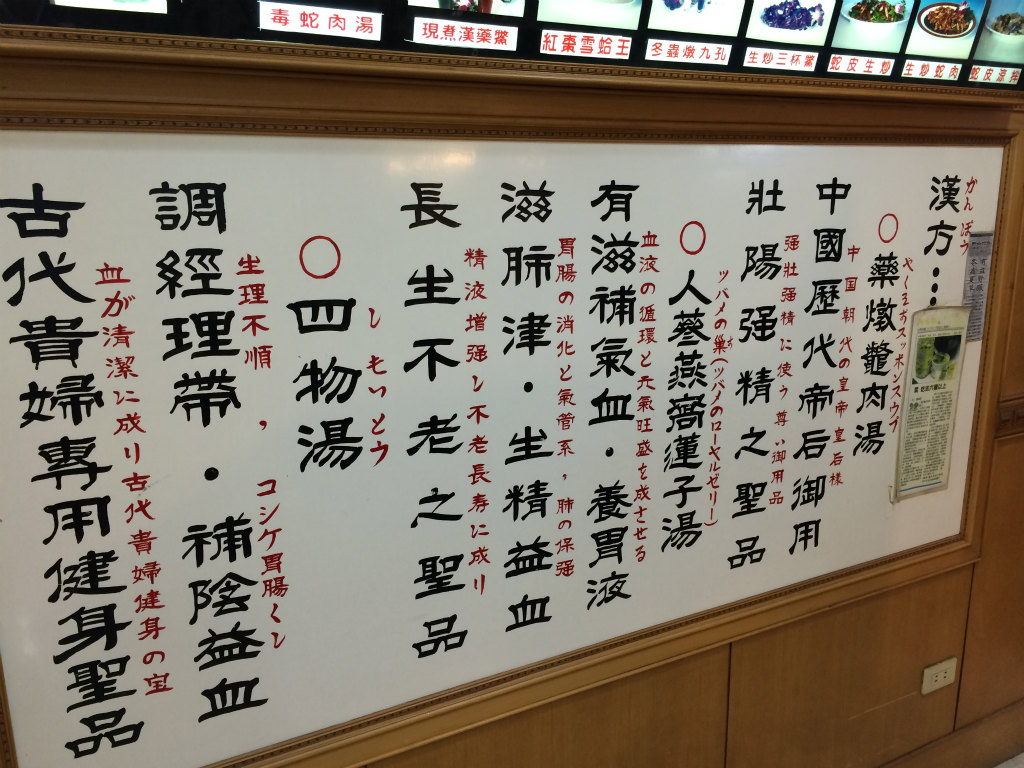 毒蛇肉湯
現煮漢藥鱉
紅棗雪蛤王
冬蟲燉九孔
生炒三杯鱉
蛇皮生炒
生炒蛇肉
蛇皮涼拌
漢方…
かんぽう
○藥燉鼈肉湯
やくぜんスッポンスウプ
中國歷代帝后御用
中国朝代の皇帝皇后樣
壯陽强精之聖品
强壯强精に使う尊い御用品
○人蔘燕窩蓮子湯
ツバメの巢(ツバメのローヤルゼリー)
有滋補氣血·養胃液
血液の循環と元氣旺盛を成させる
滋肺津·生精益血
胃腸の消化と氣管系，肺の保强
長生不老之聖品
精液增强し不老長寿に成り
○四物湯
しもつとウ
調經理帶·補陰益血
生理不順，コシケ胃腸くし
古代貴婦專用健身聖品
血が清潔に成り古代貴婦健身の宝